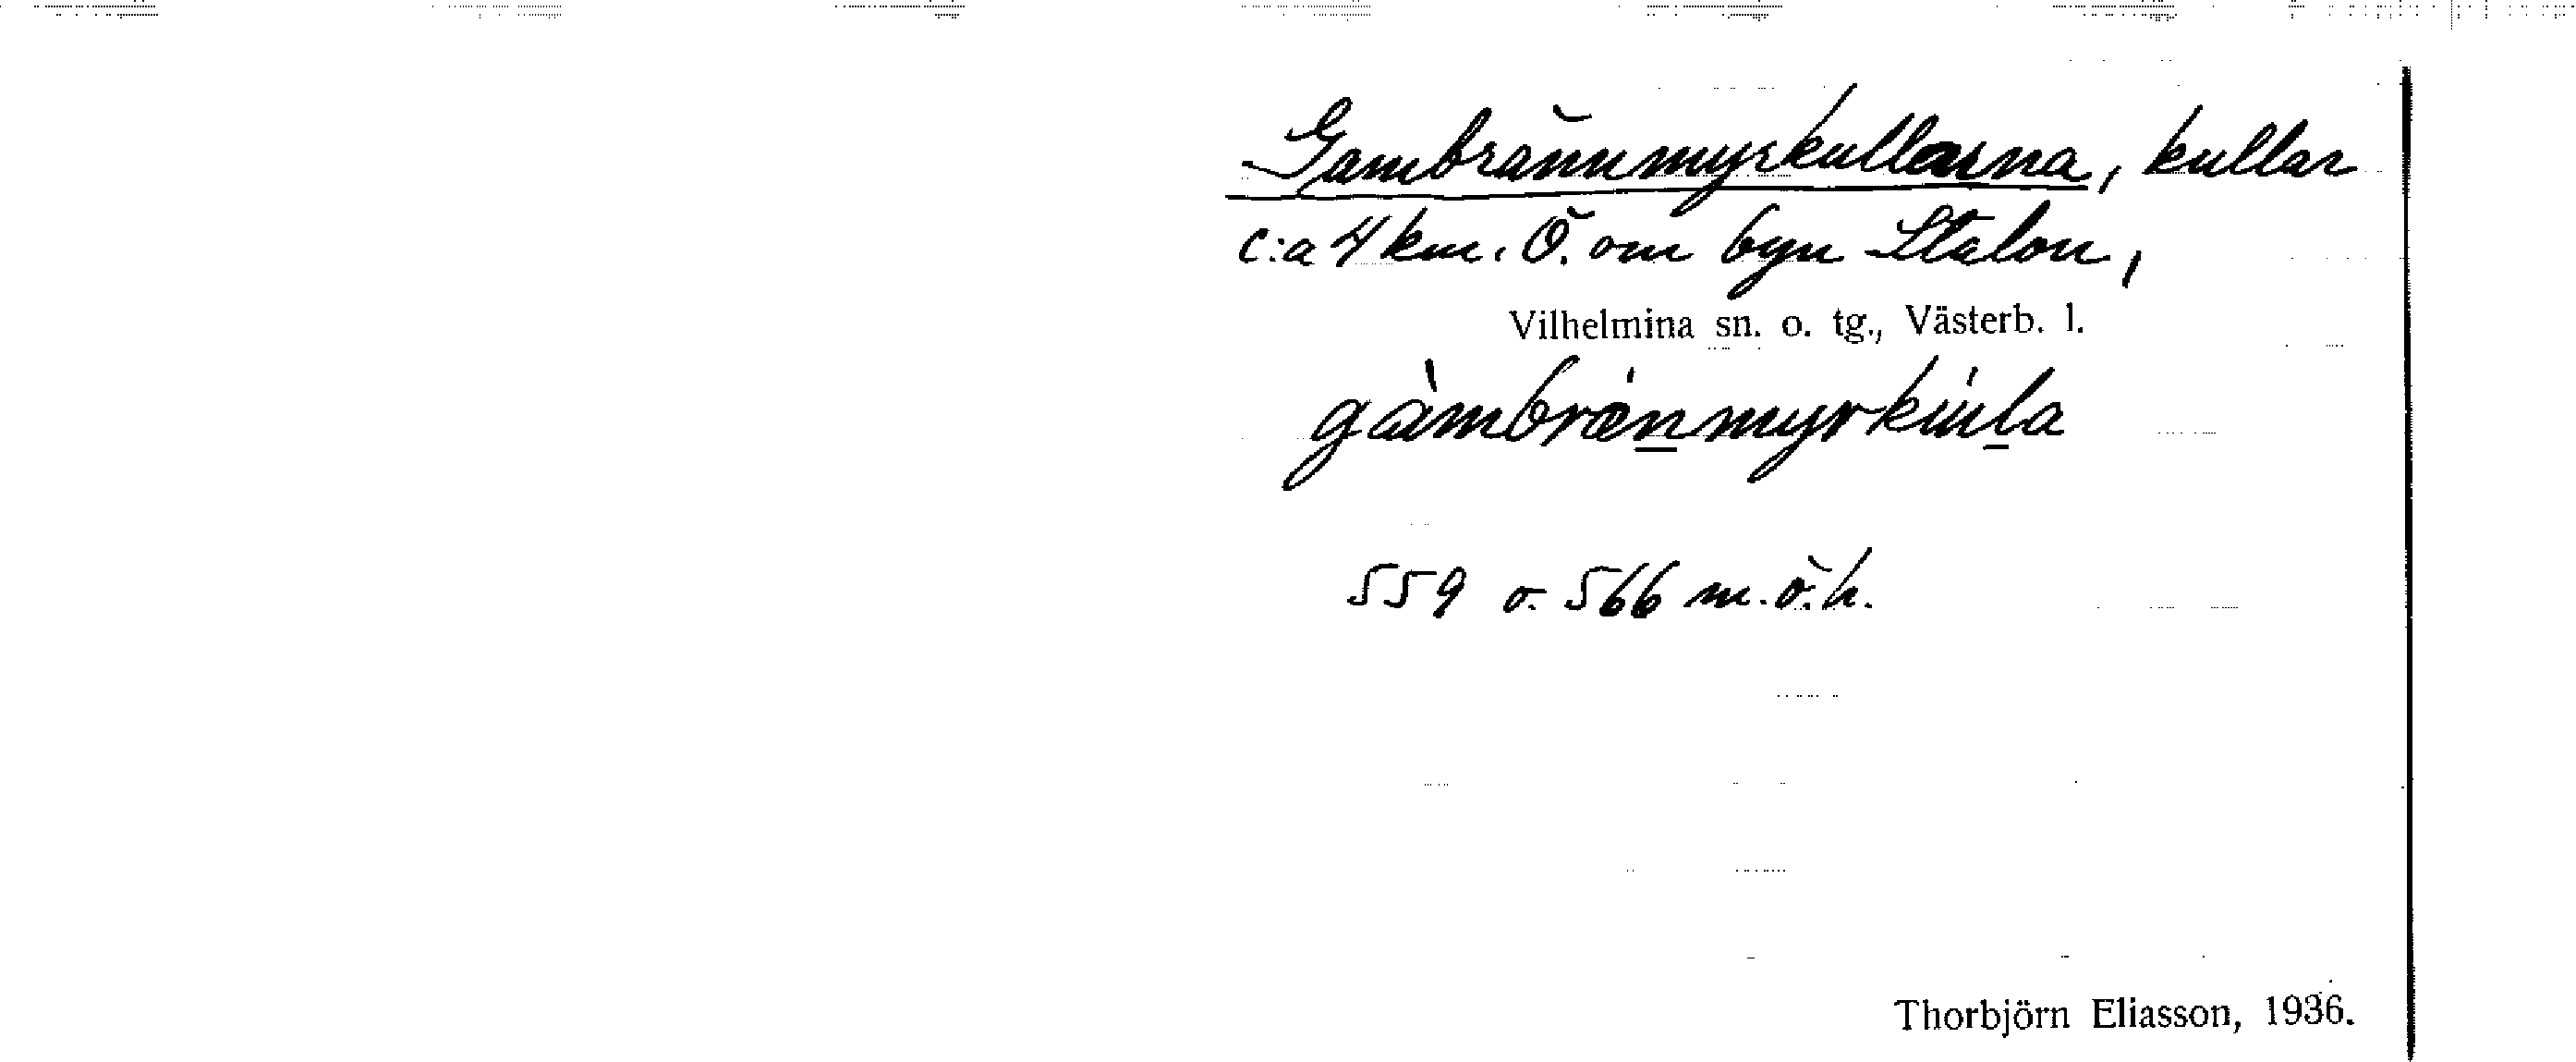 Gambrännmyrkullarna, kullar
c:a 4 km. Ö. om byn Stalon,
Vilhelmina sn. o. tg., Västerb. l.
gàmbrænmyrkùla
559 o. 566 m.ö.h.
Thorbjörn Eliasson, 1936.